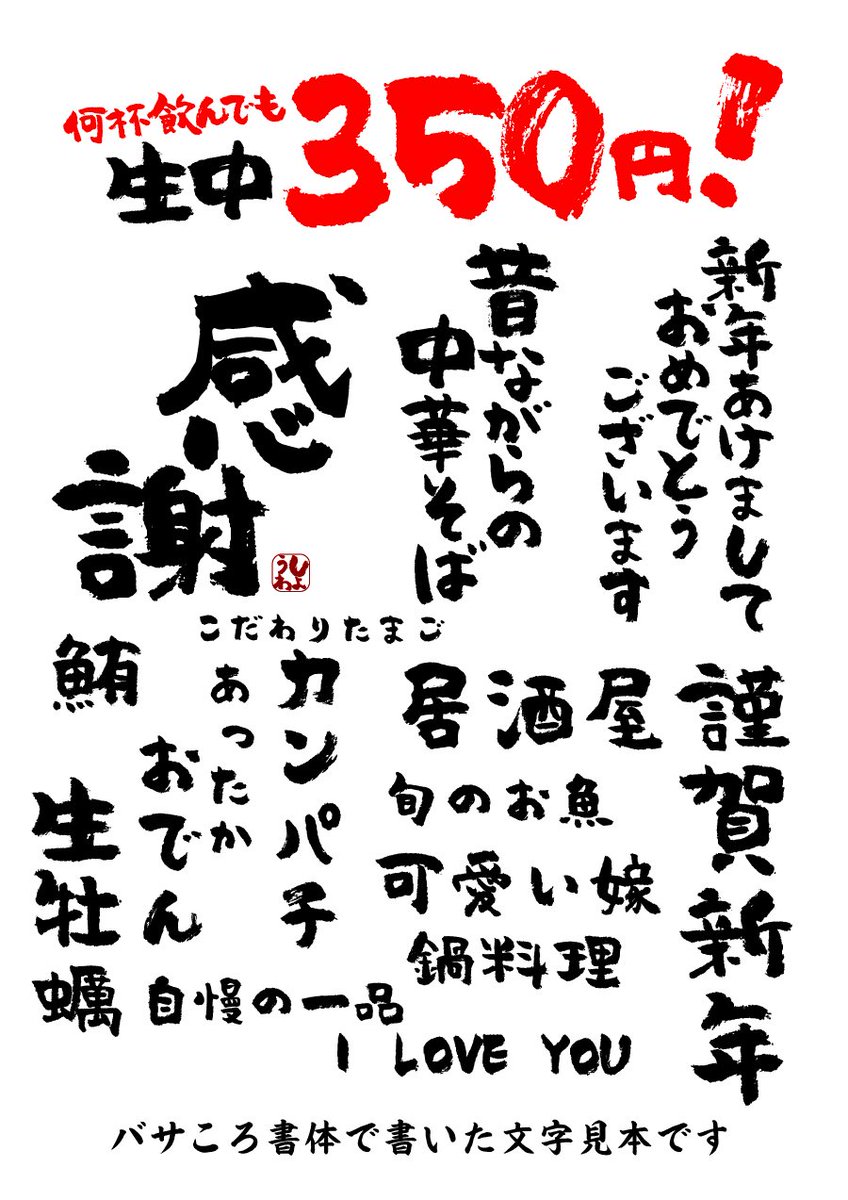 何杯飲んでも
生中350円!
新年あけまして
おめでとう
ございます
昔ながらの
中華そば
感謝
しようわ
こだわりたまご
謹賀新年
居酒屋
旬のお魚
可愛い嫁
鍋料理
カンパチ
あったか
おでん
鮪
生牡蠣
自慢の一品
I LOVE YOU
バサころ書体で書いた文字見本です